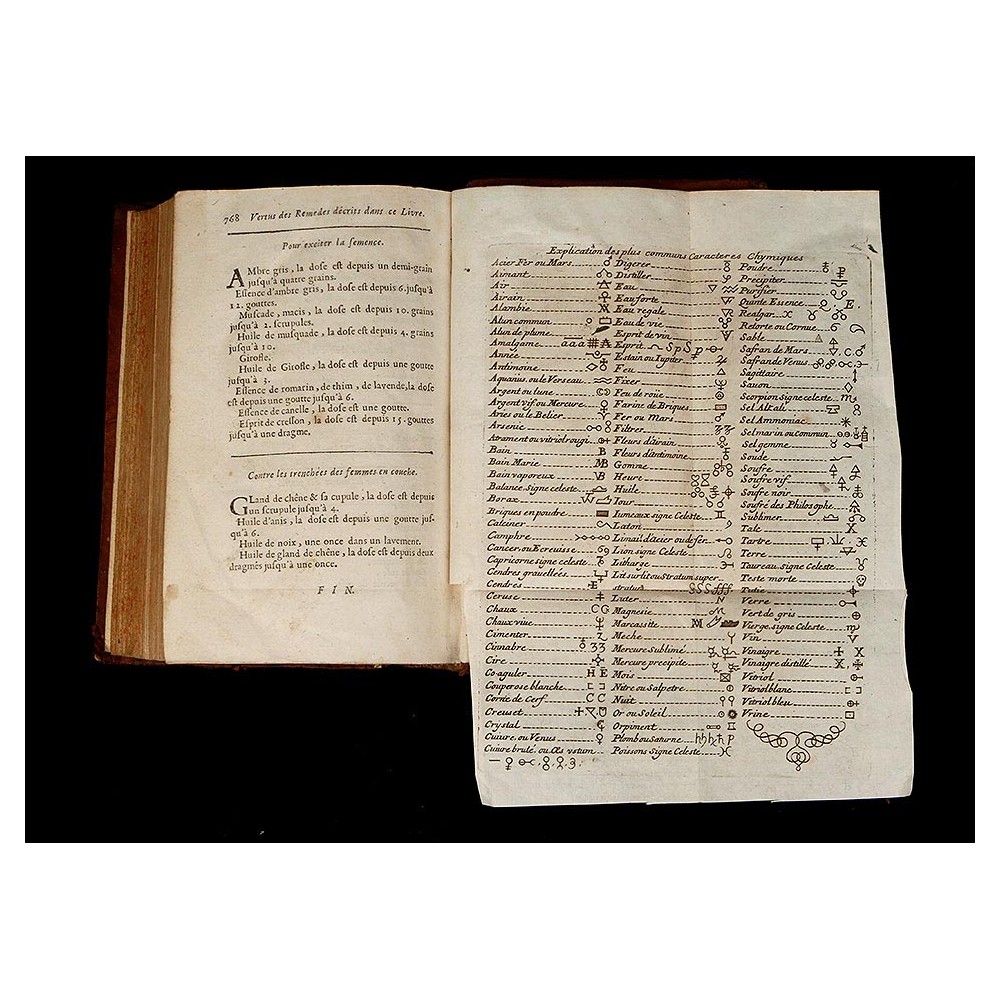 768 Vertus des Remedes décrits dans ce Livre.
Pour exciter la semence.
AMbre gris, la dose est depuis un demi-grain
jusqu'à quatre grains.
Essence d'ambre gris, la dose est depuis 6. jusqu'à
12. gouttes.
Muscade, macis, la dose est depuis 10. grains
jusqu'à 2. scrupules.
Huile de muscade, la dose est depuis 4. grains
jusqu'à 10.
Girofle.
Huile de Girofle, la dose est depuis une goutte
jusqu'à 3.
Essence de romarin, de thim, de lavende, la dose
est depuis une goutte jusqu'à 6.
Essence de canelle, la dose est une goutte.
Esprit de cresson, la dose est depuis 15. gouttes
jusqu'à une dragme.
Contre les trenchées des femmes en couche.
GLand de chêne & sa cupule, la dose est depuis
un scrupule jusqu'à 4.
Huile d'anis, la dose est depuis une goutte jus-
qu'à 6.
Huile de noix, une once dans un lavement.
Huile de gland de chêne, la dose est depuis deux
dragmes jusqu'à une once.
FIN.
Explication des plus communs Caracteres Chymiques
Acier Fer ou Mars
Aimant
Air
Airain
Alambic
Alun commun
Alun de plume
Amalgame aaa
Année
Antimoine
Aquarius. ou le Verseau
Argent ou lune
Argent vif. ou Mercure
Aries ou le Belier
Arsenic
Atrament ou vitriol rougi
Bain B
Bain Marie MB
Bain vaporeux
Balance. signe celeste
Borax
Briques en poudre
Calciner
Camphre
Cancer ou Ecreuisse
Capricorne signe celeste
Cendres gravellées
Cendres
Ceruse
Chaux
Chaux viue
Cimenter
Cinnabre
Cire
Coaguler
Couperose blanche
Corne de Cerf
Creuset
Crystal
Cuiure. ou Venus
Cuivre brulé. ou Æs ustum
Digerer
Distiller
Eau
Eau forte
Eau regale
Eau de vie
Esprit de vin
Esprit
Estain ou Iupiter
Feu
Fixer
Feu de roüe
Farine de Briques
Fer ou Mars
Filtrer
Fleurs d'airain
Fleurs d'antimoine
Gomme
Heure
Huile
Iour
Iumeaux signe Celeste
Laton
Limail d'acier ou de fer
Lion signe Celeste
Litharge
Lit sur lit ou Stratum super
stratum
Luter
Magnesie
Marcassite
Meche
Mercure Sublimé
Mercure precipite
Mois
Nitre ou Salpetre
Nuit
Or ou Soleil
Orpiment
Plomb ou Saturne
Poissons Signe Celeste
Poudre
Précipiter
Purifier
Quinte Essence
Realgar
Retorte ou Cornue
Sable
Safran de Mars
Safran de Venus
Sagittaire
Sauon
Scorpion signe celeste
Sel Alkali
Sel Ammoniac
Sel marin ou commun
Sel gemme
Soude
Soufre
Soufre vif
Soufre noir
Soufre des Philosophe
Sublimer
Talc
Tartre
Terre
Taureau. Signe Celeste
Teste morte
Tutie
Verre
Vert de gris
Vierge. signe Celeste
Vin
Vinaigre
Vinaigre distillé
Vitriol
Vitriol blanc
Vitriol bleu
Vrine